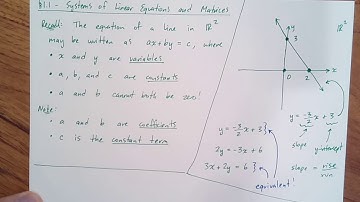 §1.1 - Systems of Linear Equations and Matrices
Recall: The equation of a line in ℝ²
may be written as ax+by=c, where
• x and y are variables
• a, b, and c are constants
• a and b cannot both be zero!
Note:
• a and b are coefficients
• c is the constant term
ℝ²
y
3
x
0 2
y = -3/2 x + 3
slope y-intercept
slope = rise/run
y = -3/2 x + 3 }
2y = -3x + 6
3x + 2y = 6 }
equivalent!